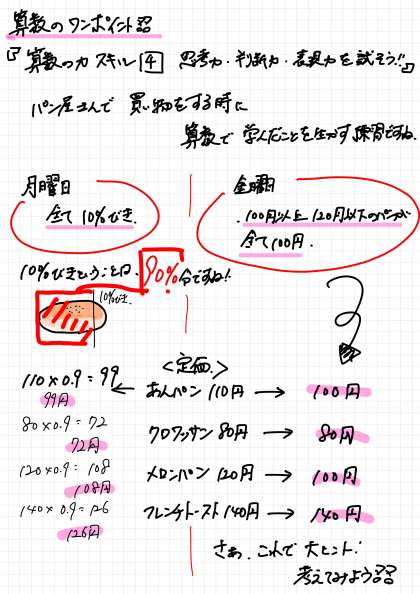 算数のワンポイント
『算数の力 スキル 4 思考力・判断力・表現力を試そう!!』
パン屋さんで 買い物をする時に
算数で 学んだことを生かす練習ですね。
月曜日
全て 10%びき。
金曜日
・100円以上 120円以下のパンが
全て100円。
10%びきということは、90%分ですね!!
10%びき。
<定価>
110×0.9=99
99円
あんパン 110円 → 100円
80×0.9=72
72円
クロワッサン 80円 → 80円
120×0.9=108
108円
メロンパン 120円 → 100円
140×0.9=126
126円
フレンチトースト 140円 → 140円
さあ、これで 大ヒント!
考えてみよう